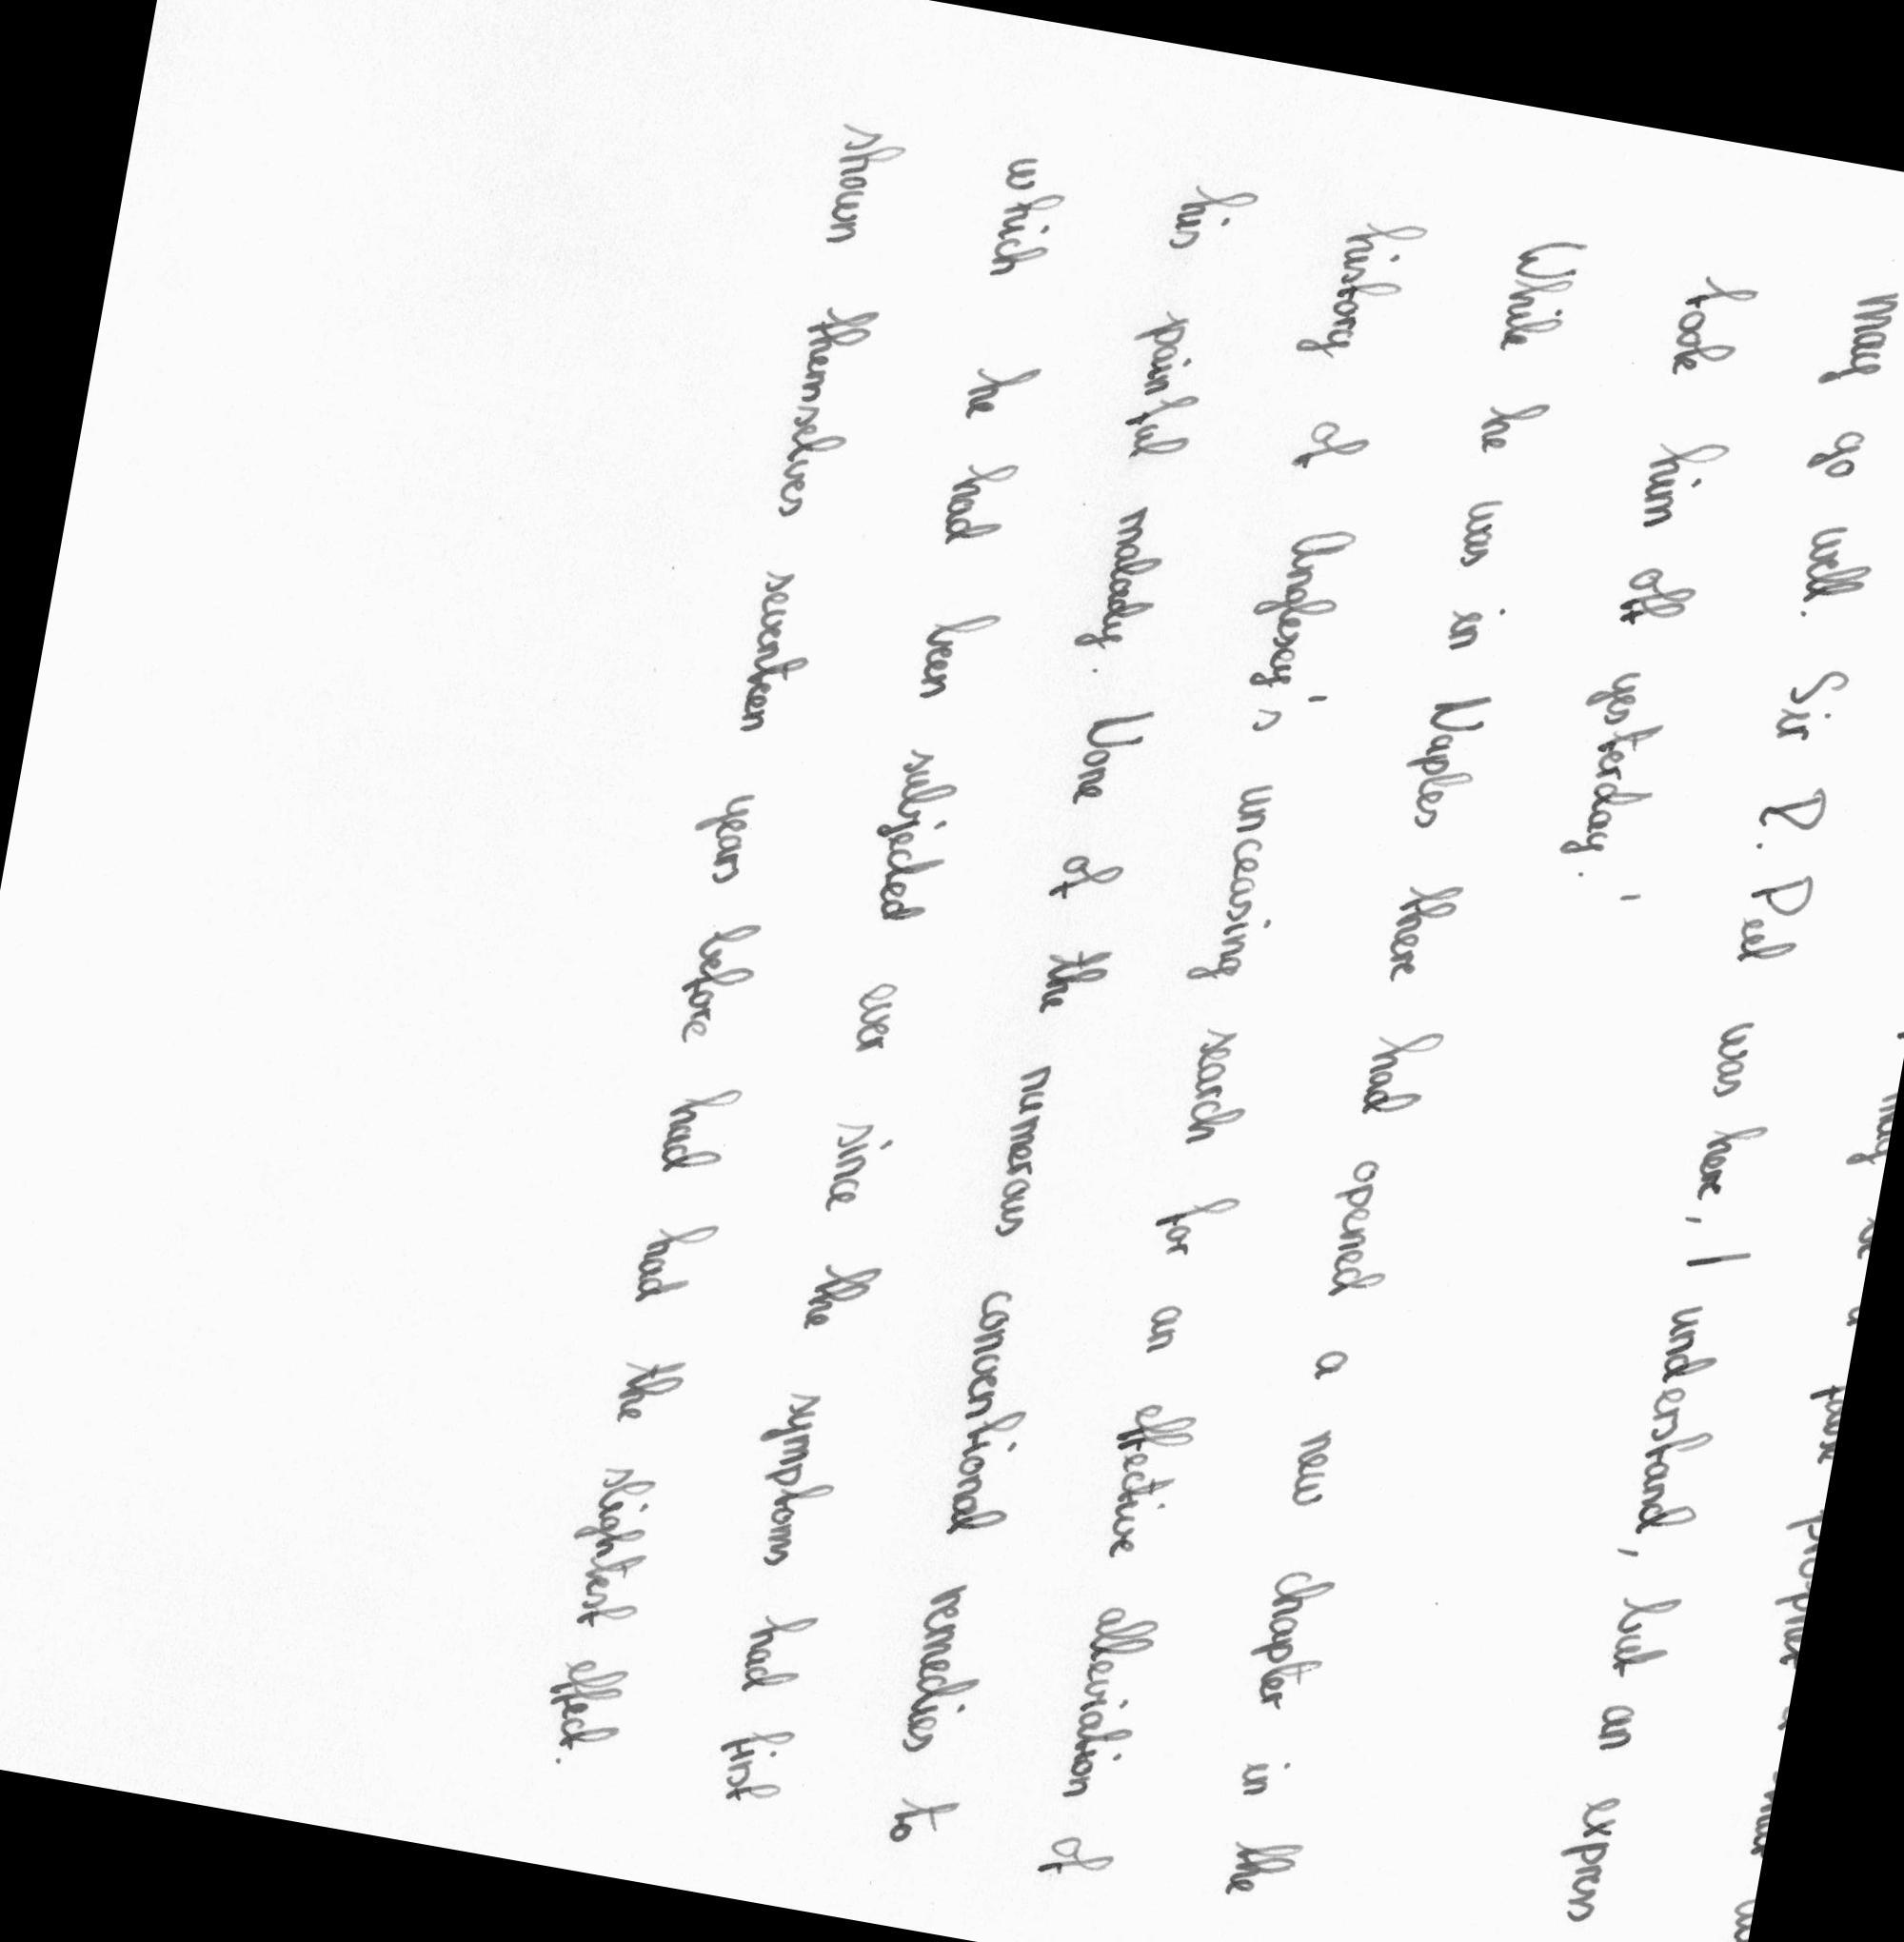 may
may go well. Sir R. Peel was here, I understand, but an express
took him off yesterday.'
While he was in Naples there had opened a new chapter in the
history of Anglesey's unceasing search for an effective alleviation of
his painful malady. None of the numerous conventional remedies to
which he had been subjected ever since the symptoms had first
shown themselves seventeen years before had had the slightest effect.